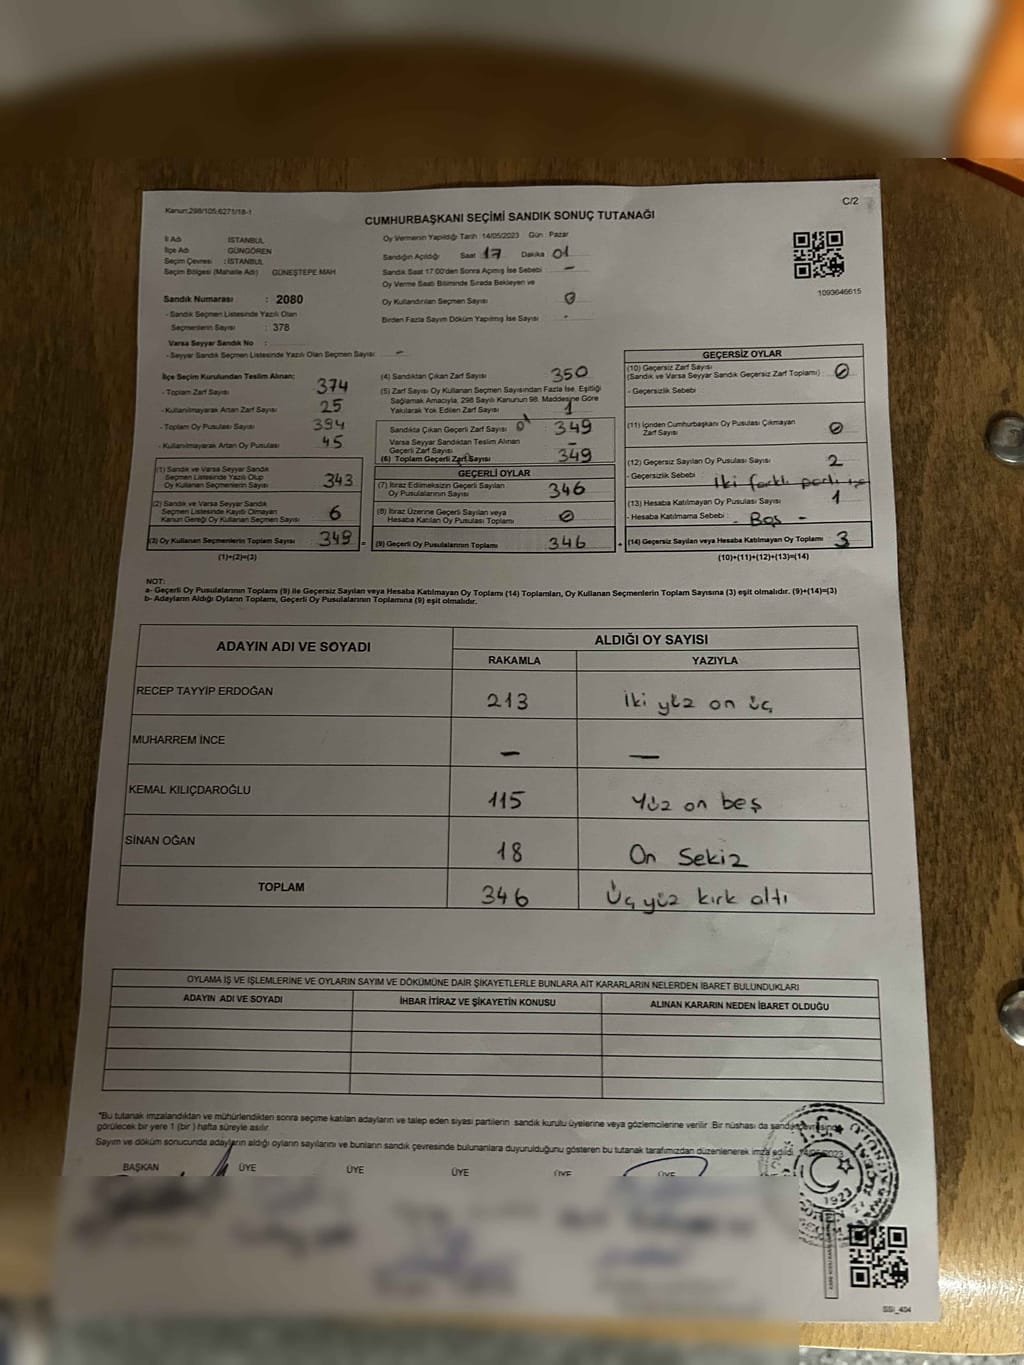 Kanun:298/105;6271/18-1
C/2
CUMHURBAŞKANI SEÇİMİ SANDIK SONUÇ TUTANAĞI
İl Adı : İSTANBUL
İlçe Adı : GÜNGÖREN
Seçim Çevresi : İSTANBUL
Seçim Bölgesi (Mahalle Adı) GÜNEŞTEPE MAH
Oy Vermenin Yapıldığı Tarih :14/05/2023 Gün : Pazar
Sandığın Açıldığı Saat 17 Dakika 01
Sandık Saat 17:00'den Sonra Açılmış İse Sebebi : -
Oy Verme Saati Bitiminde Sırada Bekleyen ve
Oy Kullandırılan Seçmen Sayısı : 0
Birden Fazla Sayım Döküm Yapılmış İse Sayısı : -
1093646615
Sandık Numarası : 2080
- Sandık Seçmen Listesinde Yazılı Olan
Seçmenlerin Sayısı : 378
Varsa Seyyar Sandık No :
- Seyyar Sandık Seçmen Listesinde Yazılı Olan Seçmen Sayısı: -
İlçe Seçim Kurulundan Teslim Alınan;
- Toplam Zarf Sayısı : 374
- Kullanılmayarak Artan Zarf Sayısı : 25
- Toplam Oy Pusulası Sayısı : 394
- Kullanılmayarak Artan Oy Pusulası : 45
(1) Sandık ve Varsa Seyyar Sandık
Seçmen Listesinde Yazılı Olup
Oy Kullanan Seçmenlerin Sayısı 343
(2) Sandık ve Varsa Seyyar Sandık
Seçmen Listesinde Kayıtlı Olmayan
Kanun Gereği Oy Kullanan Seçmen Sayısı 6
(3) Oy Kullanan Seçmenlerin Toplam Sayısı 349 =
(1)+(2)=(3)
(4) Sandıktan Çıkan Zarf Sayısı : 350
(5) Zarf Sayısı Oy Kullanan Seçmen Sayısından Fazla İse, Eşitliği
Sağlamak Amacıyla, 298 Sayılı Kanunun 98. Maddesine Göre
Yakılarak Yok Edilen Zarf Sayısı : 1
Sandıkta Çıkan Geçerli Zarf Sayısı : 349
Varsa Seyyar Sandıktan Teslim Alınan
Geçerli Zarf Sayısı : -
(6) Toplam Geçerli Zarf Sayısı : 349
GEÇERLİ OYLAR
(7) İtiraz Edilmeksizin Geçerli Sayılan
Oy Pusulalarının Sayısı 346
(8) İtiraz Üzerine Geçerli Sayılan veya
Hesaba Katılan Oy Pusulası Toplamı 0
(9) Geçerli Oy Pusulalarının Toplamı 346 +
GEÇERSİZ OYLAR
(10) Geçersiz Zarf Sayısı
(Sandık ve Varsa Seyyar Sandık Geçersiz Zarf Toplamı) : 0
- Geçersizlik Sebebi :
(11) İçinden Cumhurbaşkanı Oy Pusulası Çıkmayan
Zarf Sayısı : 0
(12) Geçersiz Sayılan Oy Pusulası Sayısı : 2
- Geçersizlik Sebebi : İki farklı parti
(13) Hesaba Katılmayan Oy Pusulası Sayısı : 1
- Hesaba Katılmama Sebebi : - Boş -
(14) Geçersiz Sayılan veya Hesaba Katılmayan Oy Toplamı : 3
(10)+(11)+(12)+(13)=(14)
NOT:
a- Geçerli Oy Pusulalarının Toplamı (9) ile Geçersiz Sayılan veya Hesaba Katılmayan Oy Toplamı (14) Toplamları, Oy Kullanan Seçmenlerin Toplam Sayısına (3) eşit olmalıdır. (9)+(14)=(3)
b- Adayların Aldığı Oyların Toplamı, Geçerli Oy Pusulalarının Toplamına (9) eşit olmalıdır.
ADAYIN ADI VE SOYADI
ALDIĞI OY SAYISI
RAKAMLA YAZIYLA
RECEP TAYYİP ERDOĞAN 213 İki yüz on üç
MUHARREM İNCE - -
KEMAL KILIÇDAROĞLU 115 Yüz on beş
SİNAN OĞAN 18 On Sekiz
TOPLAM 346 Üç yüz kırk altı
OYLAMA İŞ VE İŞLEMLERİNE VE OYLARIN SAYIM VE DÖKÜMÜNE DAİR ŞİKAYETLERLE BUNLARA AİT KARARLARIN NELERDEN İBARET BULUNDUKLARI
ADAYIN ADI VE SOYADI İHBAR İTİRAZ VE ŞİKAYETİN KONUSU ALINAN KARARIN NEDEN İBARET OLDUĞU
*Bu tutanak imzalandıktan ve mühürlendikten sonra seçime katılan adayların ve talep eden siyasi partilerin sandık kurulu üyelerine veya gözlemcilerine verilir. Bir nüshası da sandık çevresinde
görülecek bir yere 1 (bir ) hafta süreyle asılır.
Sayım ve döküm sonucunda adayların aldığı oyların sayılarını ve bunların sandık çevresinde bulunanlara duyurulduğunu gösteren bu tutanak tarafımızdan düzenlenerek imza edildi. 14/05/2023
BAŞKAN ÜYE ÜYE ÜYE ÜYE ÜYE
T.C.
1923
SSI_404